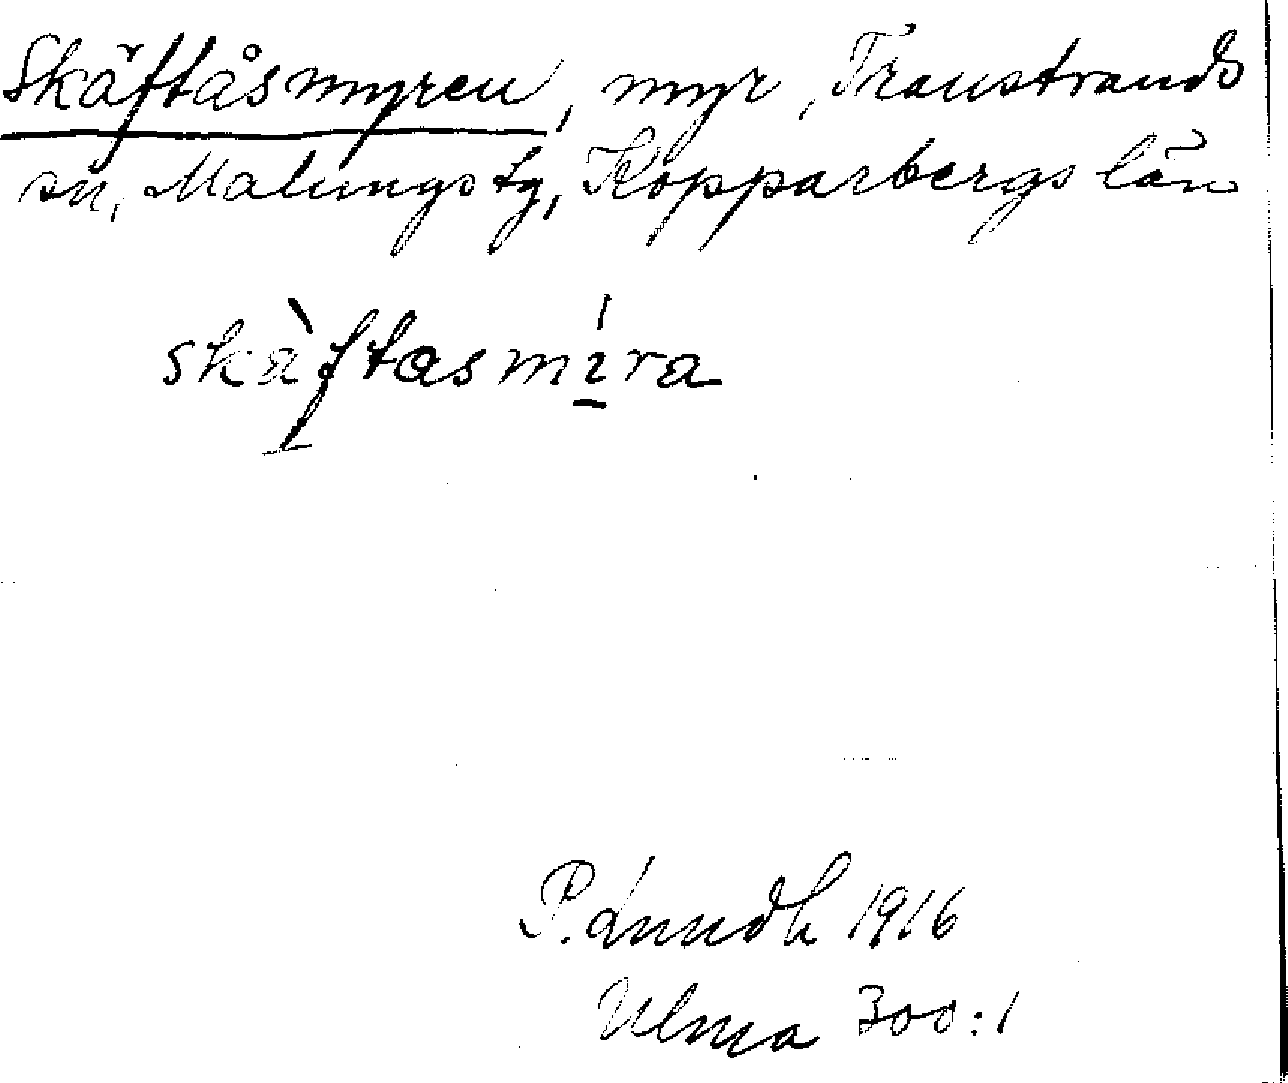 Skäftåsmyren, myr, Transtrands
sn, Malungs tg, Kopparbergs län
skæ̀ftasmí̱ra
P. Lundh 1916
Ulma 300:1